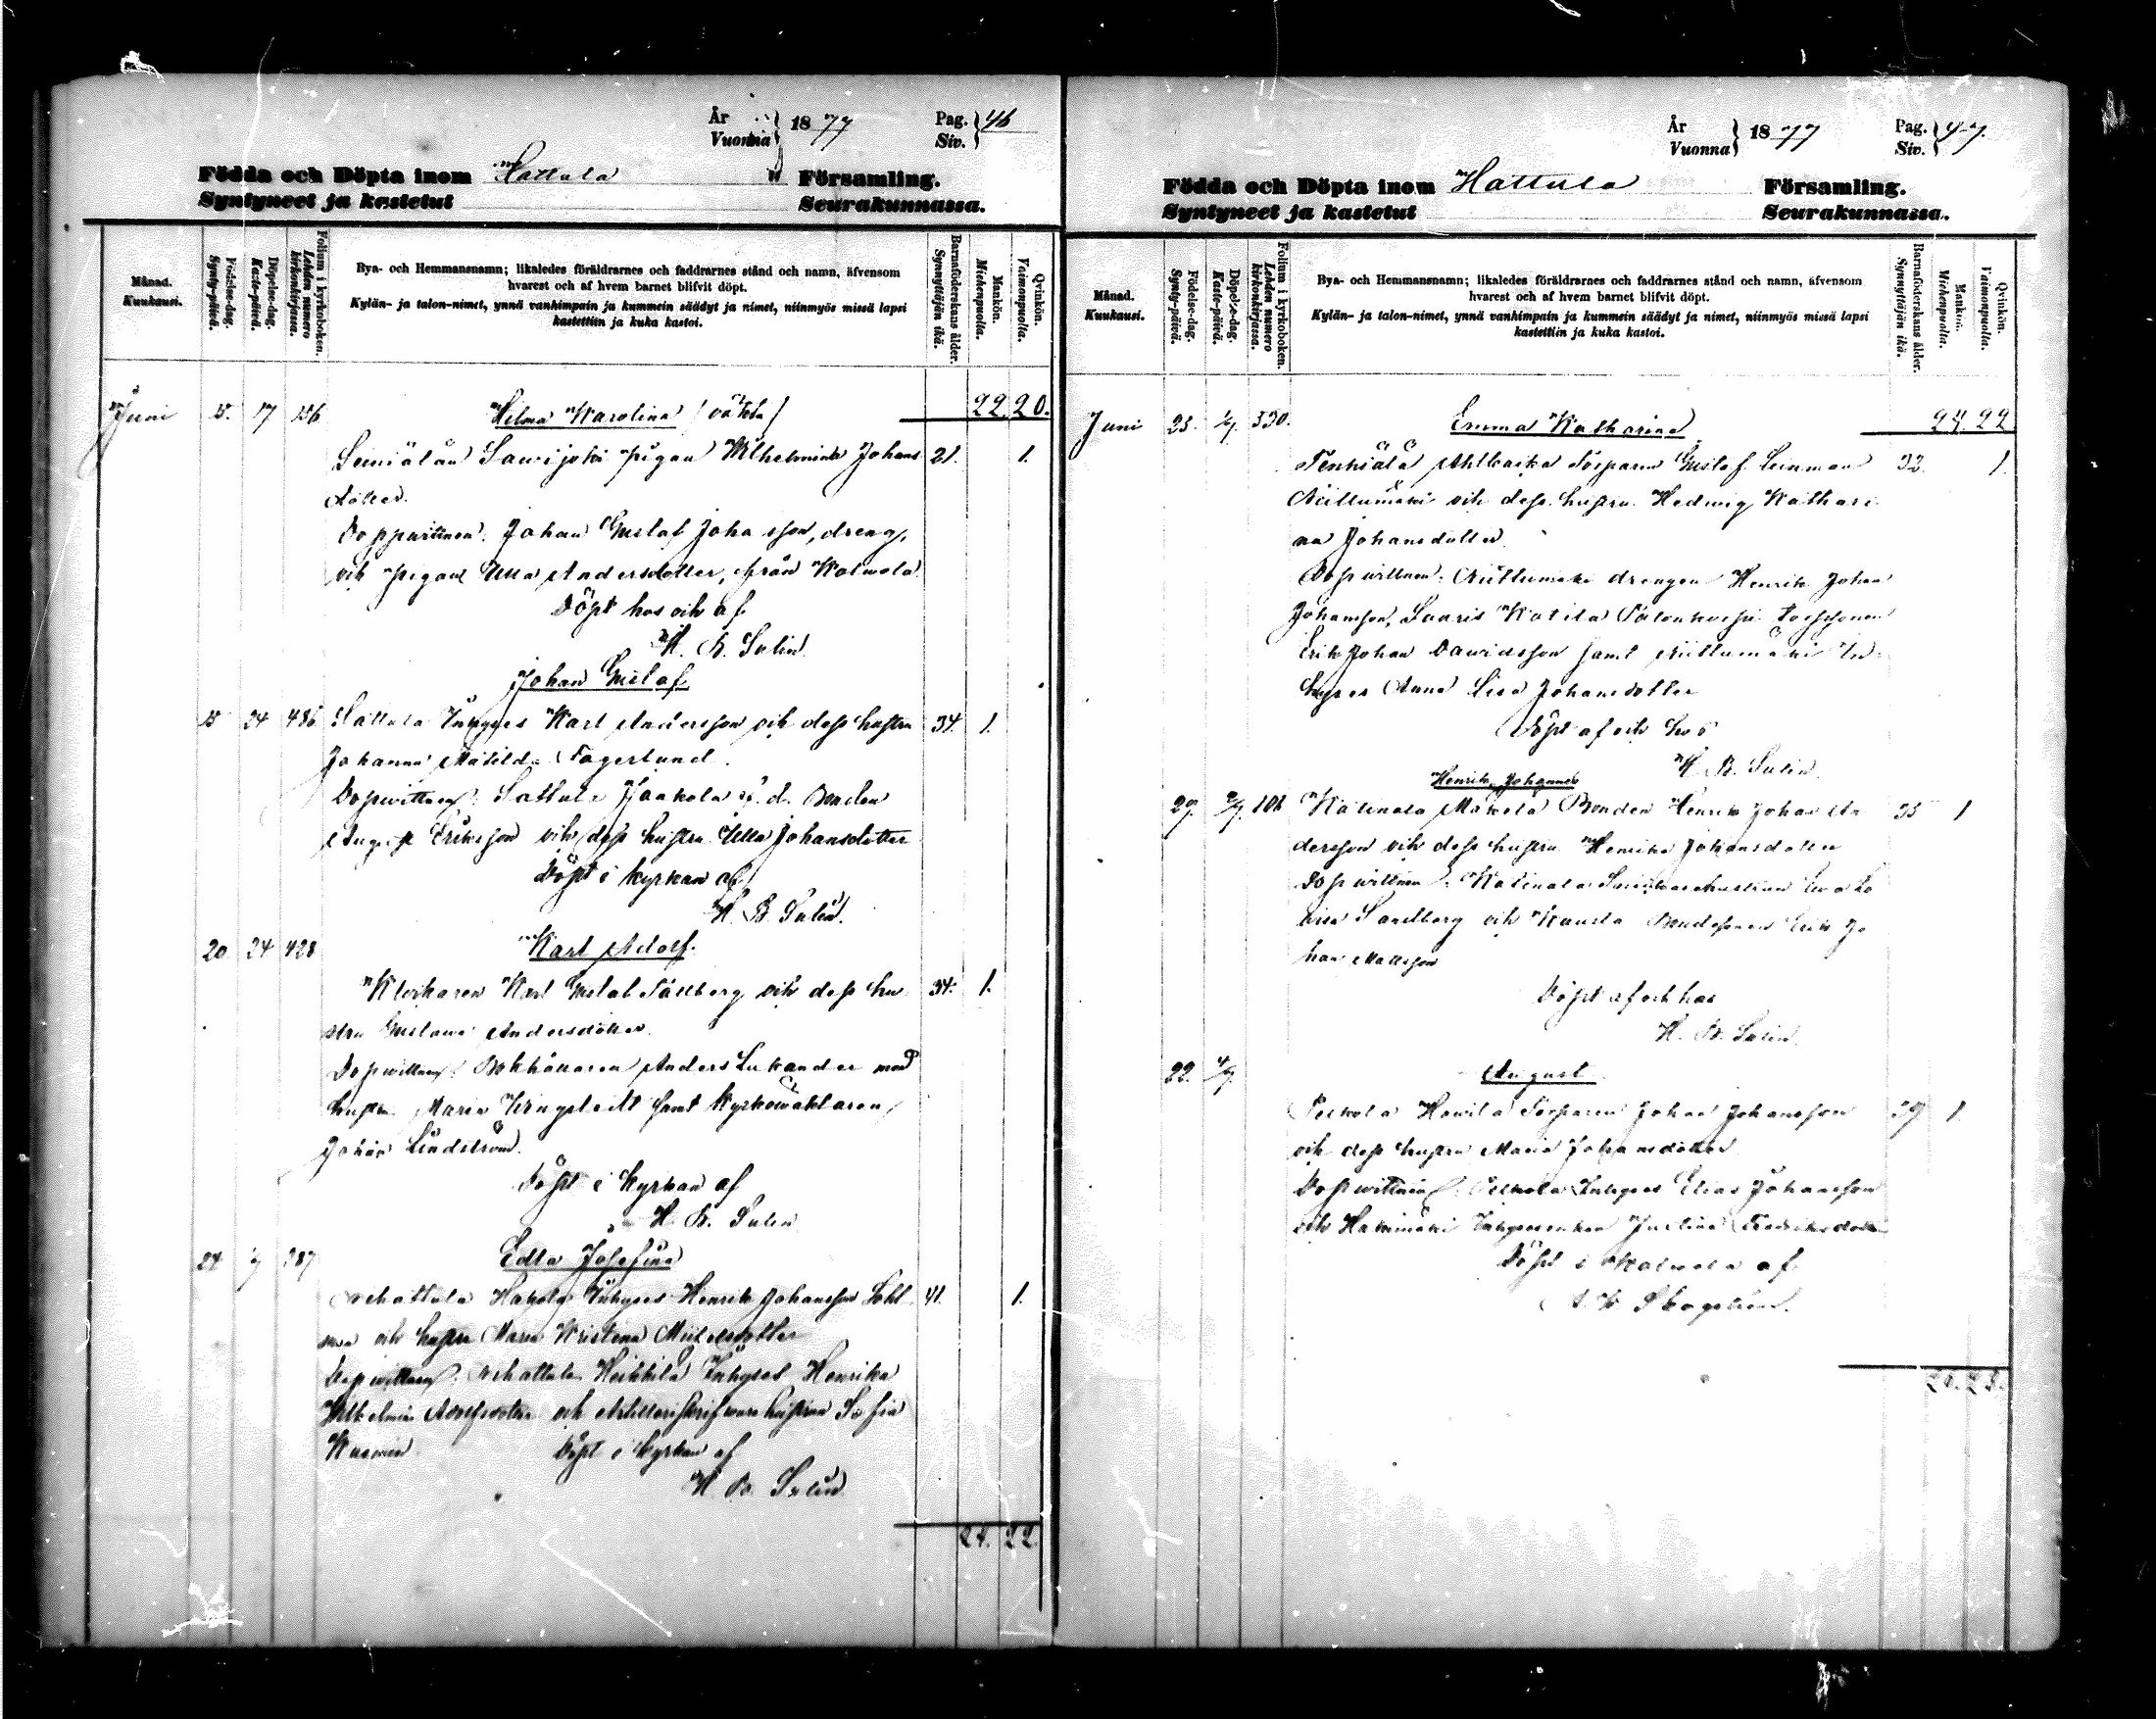 År
Vuonna } 1877 Pag.
Siv. } 46
Födda och Döpta inom Hattula Församling.
Syntyneet ja kastetut Seurakunnassa.
Månad.
Kuukausi.
Födelse-dag.
Synty-päivä.
Döpelse-dag.
Kaste-päivä.
Folium i kyrkoboken.
Lehden numero kirkonkirjassa.
Bya- och Hemmansnamn; likaledes föräldrarnes och faddrarnes stånd och namn, äfvensom
hvarest och af hvem barnet blifvit döpt.
Kylän- ja talon-nimet, ynnä vanhimpain ja kummein säädyt ja nimet, niinmyös missä lapsi
kastettiin ja kuka kastoi.
Barnaföderskans ålder.
Synnyttäjän ikä.
Mankön.
Miehenpuolta.
Qvinkön.
Vaimonpuolta.
Juni 15. 17 156 Hilma Karolina (oäkta) 22. 20.
Sawijoki pigan Wilhelmina Johans 21. 1.
dotter.
Dopvittnen. Johan Gustaf Johansson, dreng,
och pigan Ulla Andersdotter, från Kalwola
Döpt hos och af
K. B. Salin.
Johan Gustaf
15 24 486 Hattula Inhyses Karl Andersson och dess hustru 34. 1.
Johanna Matilda Fagerlund.
Dopvittnen: Hattula Jaakola f. d. Bonden
August Eriksson och dess hustru Ulla Johansdotter
Döpt i kyrkan af
K. B. Salin.
20 24 428 Karl Adolf.
Klockaren Karl Gustaf Fällberg och dess hu 34. 1.
stru Gustawa Andersdotter.
Dopvittnen: Bokhållaren Anders Lukander med
hustru Maria Wringstedt samt Kyrkowaktaren
Johan Lindström.
Döpt i kyrkan af
K. B. Salin
24 1/7 387 Edla Josefina
Hakola Inhyses Henrik Johansson 41. 1.
och hustru Maria Kristina
Dopvittnen: Heikkilä Inhyses Henrika
Wilhelmina Adolfsdotter och hustrun Sofia
Döpt i kyrkan af
K. B. Salin
24. 22.
År
Vuonna } 1877 Pag.
Siv. } 47.
Födda och Döpta inom Hattula Församling.
Syntyneet ja kastetut Seurakunnassa.
Månad.
Kuukausi.
Födelse-dag.
Synty-päivä.
Döpelse-dag.
Kaste-päivä.
Folium i kyrkoboken.
Lehden numero kirkonkirjassa.
Bya- och Hemmansnamn; likaledes föräldrarnes och faddrarnes stånd och namn, äfvensom
hvarest och af hvem barnet blifvit döpt.
Kylän- ja talon-nimet, ynnä vanhimpain ja kummein säädyt ja nimet, niinmyös missä lapsi
kastettiin ja kuka kastoi.
Barnaföderskans ålder.
Synnyttäjän ikä.
Mankön.
Miehenpuolta.
Qvinkön.
Vaimonpuolta.
Juni 25. 1/7 330. Emma Katharina 24. 22
Tenhiälä Ahlbacka Torparen Gustaf Leinman 32. 1.
Niittumäki och dess hustru Hedwig Kathari
na Johansdotter.
Dopvittnen: Niittumäki drengen Henrik Johan
Johansson, Saaris Katila torpsonen
Erik Johan Dawidsson samt Niittumäki In-
hyses Anna Lisa Johansdotter
Döpt af och hos
K. B. Salin.
Henrik Johannes
29. 2/7. 106 Katinala Mäkelä Bonden Henrik Johan An 35 1
dersson och dess hustru Henrika Johansdotter
Dopvittnen: Katinala hustrun Eva Lo
visa Sandberg och Bondesonen Erik Jo
han Mattsson
Döpt af och hos
K. B. Salin.
22. 4/7. August
Pelkola Howila Torparen Johan Johansson 39 1.
och dess hustru Maria Johansdotter
Dopvittnen: Pelkola Inhyses Elias Johansson
och Inhysesenkan Justina Fredriksdotter
Döpt i Kalwola af